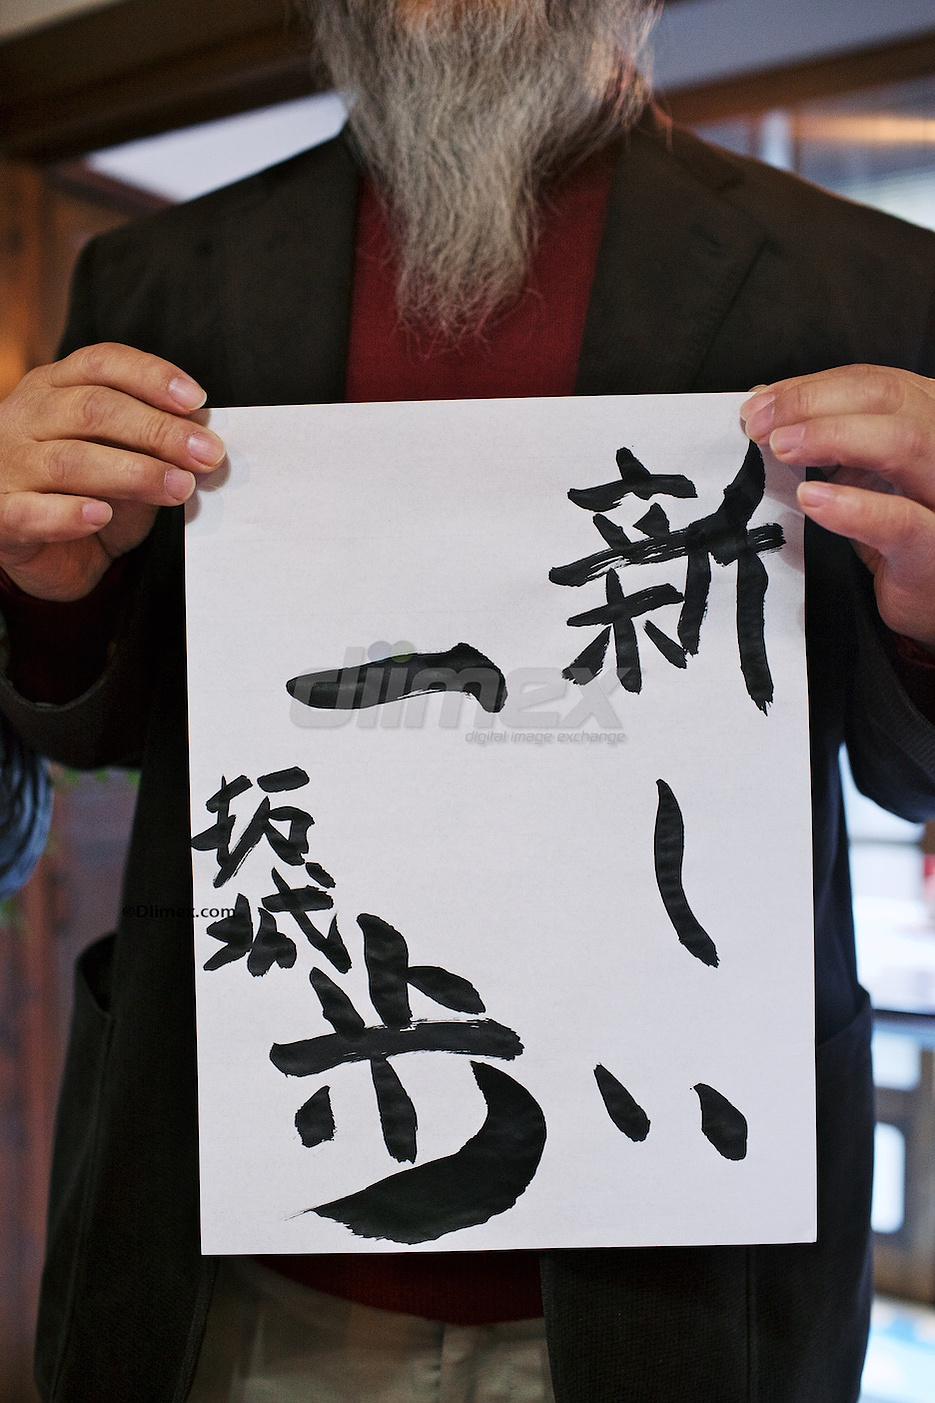 新しい
一歩
拓城
dlimex
digital image exchange
©Dlimex.com